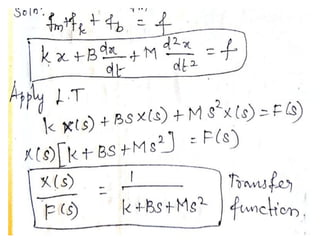 Soln:
fm+fk + fb = f
kx + B dx/dt + M d²x/dt² = f
Apply L.T
k X(s) + BSX(s) + M S² X(s) = F(s)
X(s) [k + BS + MS²] = F(s)
X(s)/F(s) = 1/(k+BS+MS²) Transfer function.